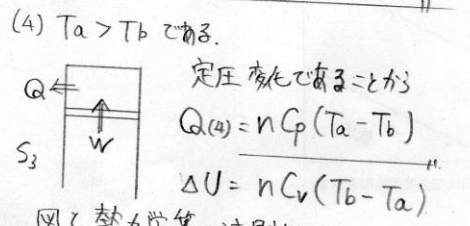 (4) Ta > Tb である.
定圧変化であることから
Q ←
Q(4) = nCp(Ta - Tb)
W
S3
ΔU = nCv(Tb - Ta)
図と熱力学第一法則